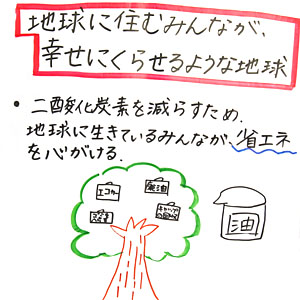 地球に住むみんなが、
幸せにくらせるような地球
• 二酸化炭素を減らすため、
地球に生きているみんなが、省エネ
を心がける.
エコカー
廃油
油